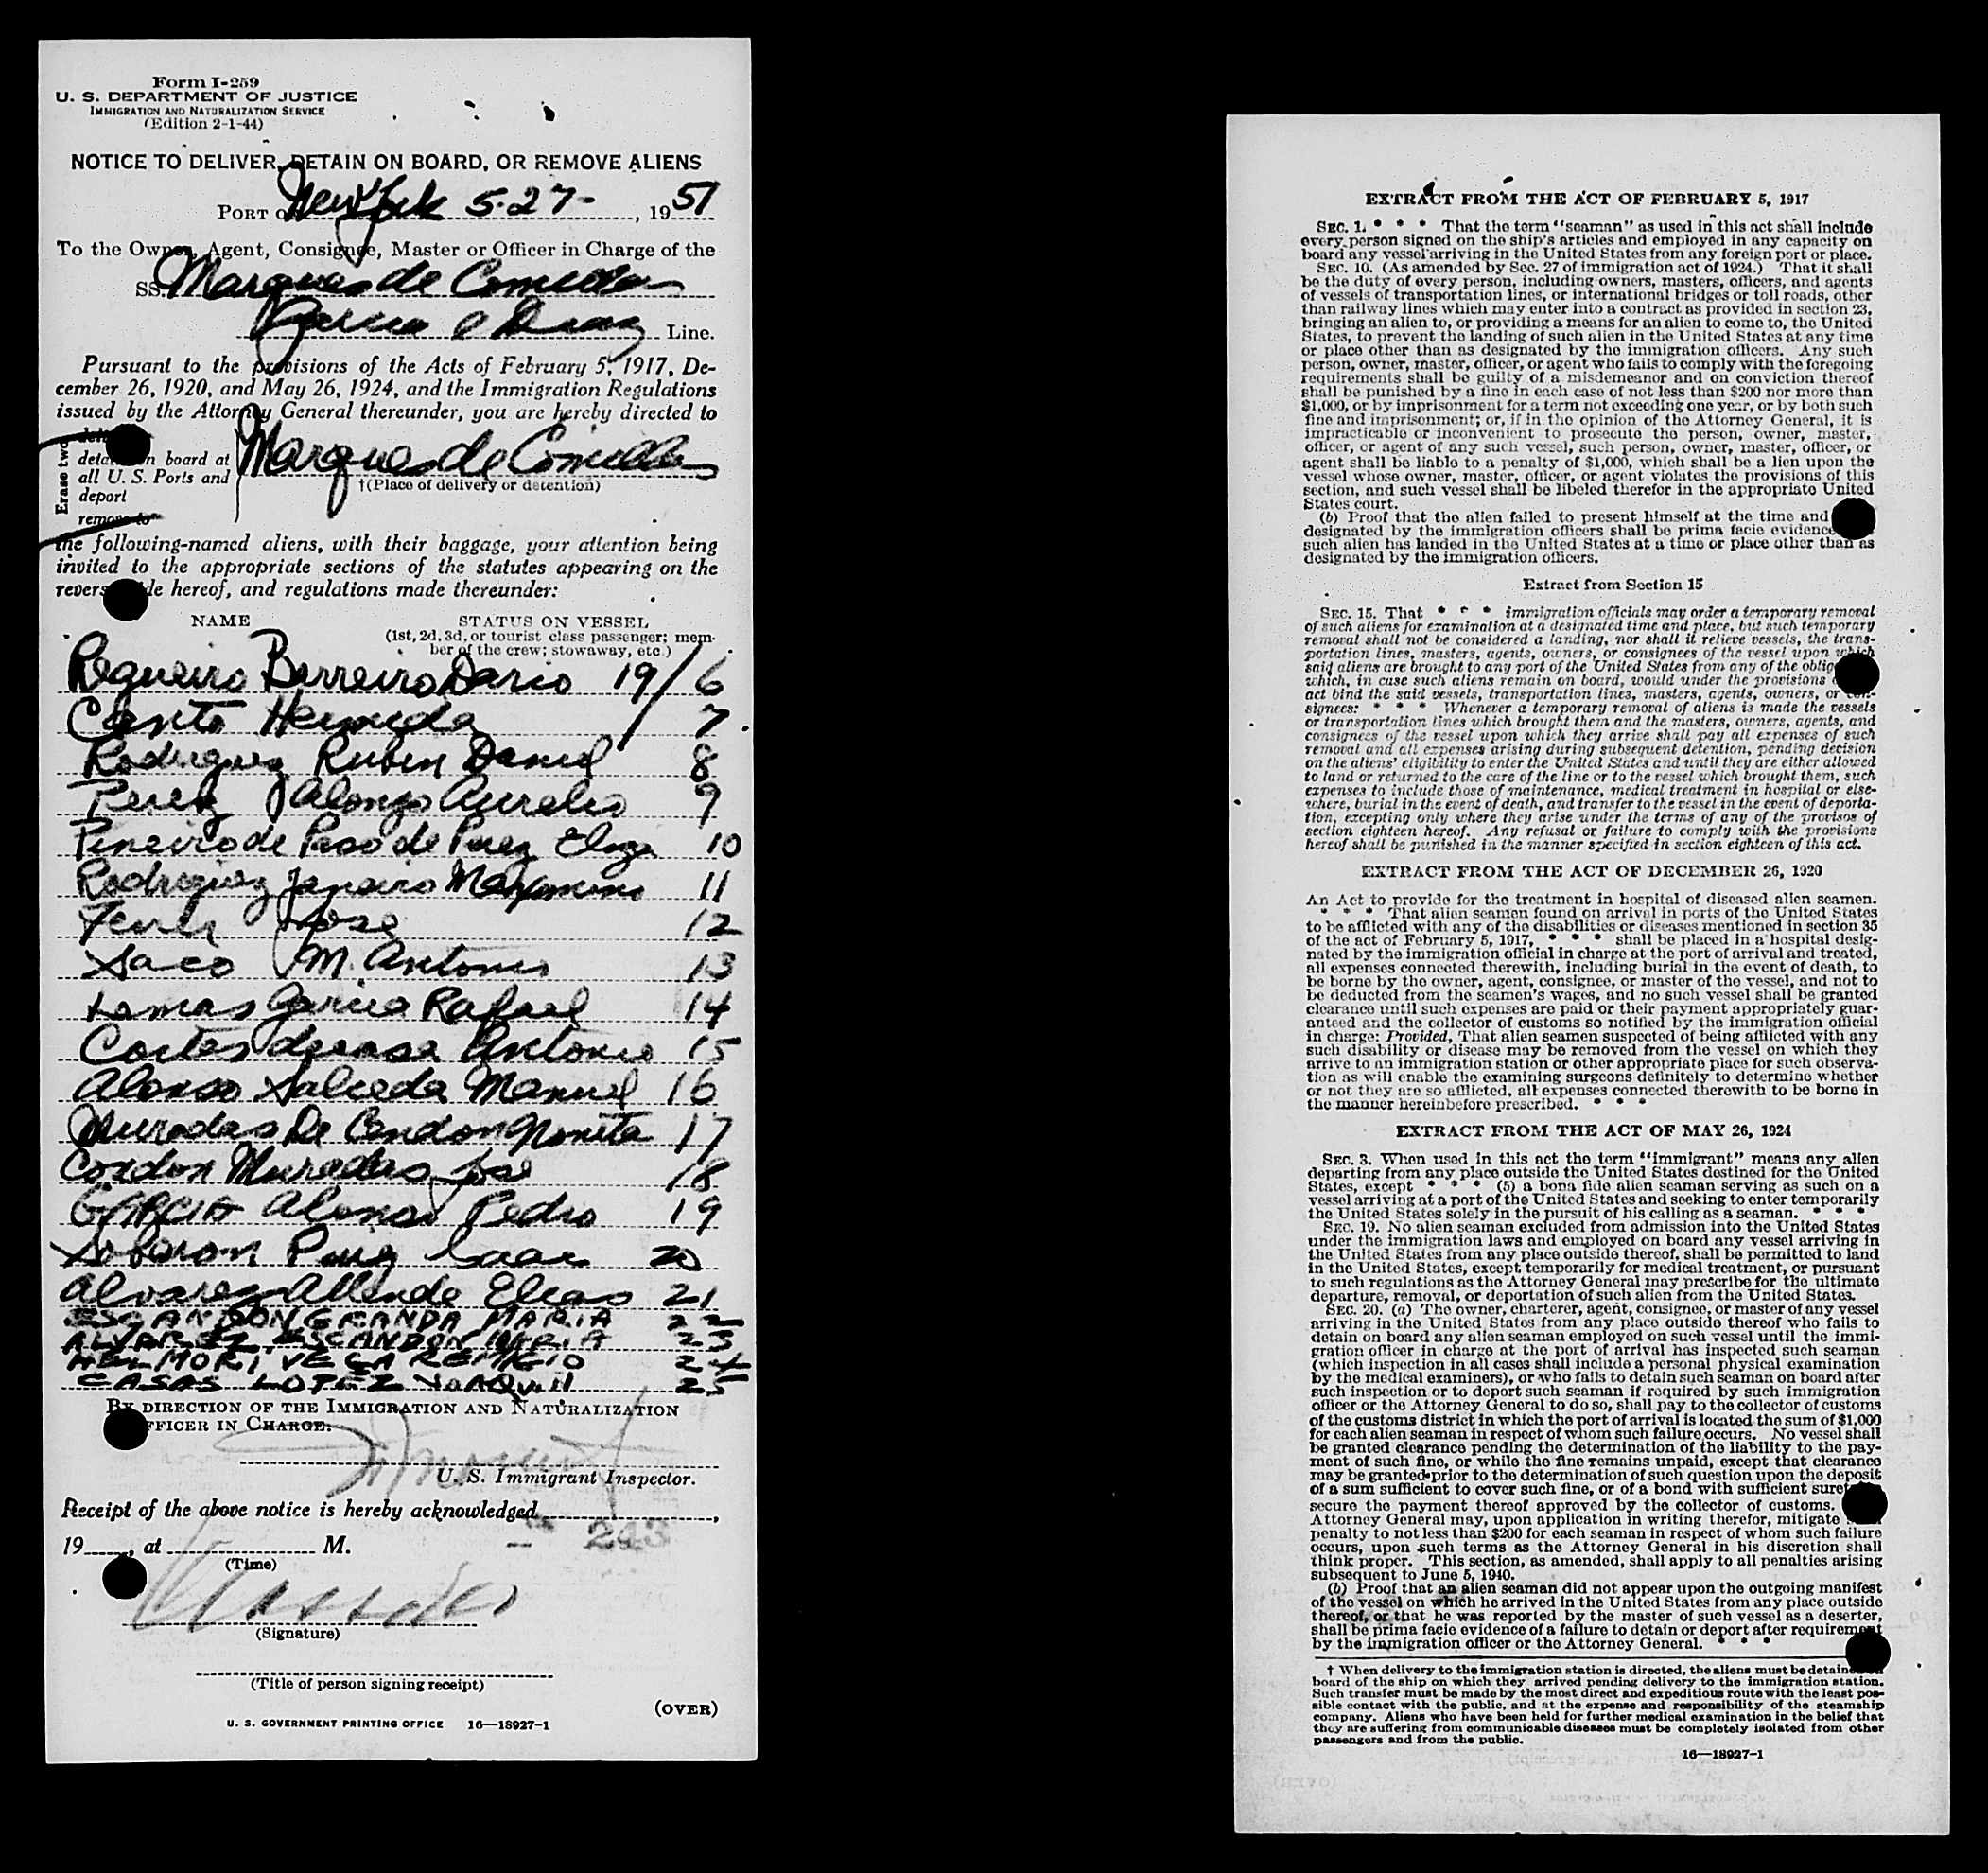 Form I-259
U. S. DEPARTMENT OF JUSTICE
IMMIGRATION AND NATURALIZATION SERVICE
(Edition 2-1-44)
NOTICE TO DELIVER, DETAIN ON BOARD, OR REMOVE ALIENS
PORT OF New York 5-27-, 1951
To the Owner, Agent, Consignee, Master or Officer in Charge of the
SS. Marques de Comillas
Garcia & Diaz Line.
Pursuant to the provisions of the Acts of February 5, 1917, De-
cember 26, 1920, and May 26, 1924, and the Immigration Regulations
issued by the Attorney General thereunder, you are hereby directed to
Erase two
board at
all U. S. Ports and
deport
remove to
Marques de Comillas
†(Place of delivery or detention)
the following-named aliens, with their baggage, your attention being
invited to the appropriate sections of the statutes appearing on the
hereof, and regulations made thereunder:
NAME
STATUS ON VESSEL
(1st, 2d, 3d, or tourist class passenger; mem-
ber of the crew; stowaway, etc.)
Regueiro Barreiro Dario 19/6
Hermida 7
Rodriguez Rubin Daniel 8
Perez Alonzo Aurelio 9
Pineiro de Paso de Perez 10
Rodriguez Janeiro Maximino 11
Jose 12
Saco M. Antonio 13
Lamas Garcia Rafael 14
Cortes Antonio 15
Alonso Salceda Manuel 16
Muradas De Condon 17
Condon Muradas Jose 18
GARCIA Alonso Pedro 19
Soberon Puig Isaac 20
Alvarez Allende Elias 21
ESCANDON GRANDA MARIA 22
ALVAREZ ESCANDON MARIA 23
VEGA REMIGIO 24
CASAS LOPEZ JOAQUIN 25
BY DIRECTION OF THE IMMIGRATION AND NATURALIZATION
OFFICER IN CHARGE:
U. S. Immigrant Inspector.
Receipt of the above notice is hereby acknowledged
243
19, at M.
(Time)
(Signature)
(Title of person signing receipt)
(OVER)
U. S. GOVERNMENT PRINTING OFFICE 16—18927-1
EXTRACT FROM THE ACT OF FEBRUARY 5, 1917
SEC. 1. * * * That the term "seaman" as used in this act shall include
every person signed on the ship's articles and employed in any capacity on
board any vessel arriving in the United States from any foreign port or place.
SEC. 10. (As amended by Sec. 27 of immigration act of 1924.) That it shall
be the duty of every person, including owners, masters, officers, and agents
of vessels of transportation lines, or international bridges or toll roads, other
than railway lines which may enter into a contract as provided in section 23,
bringing an alien to, or providing a means for an alien to come to, the United
States, to prevent the landing of such alien in the United States at any time
or place other than as designated by the immigration officers. Any such
person, owner, master, officer, or agent who fails to comply with the foregoing
requirements shall be guilty of a misdemeanor and on conviction thereof
shall be punished by a fine in each case of not less than $200 nor more than
$1,000, or by imprisonment for a term not exceeding one year, or by both such
fine and imprisonment; or, if in the opinion of the Attorney General, it is
impracticable or inconvenient to prosecute the person, owner, master,
officer, or agent of any such vessel, such person, owner, master, officer, or
agent shall be liable to a penalty of $1,000, which shall be a lien upon the
vessel whose owner, master, officer, or agent violates the provisions of this
section, and such vessel shall be libeled therefor in the appropriate United
States court.
(b) Proof that the alien failed to present himself at the time and
designated by the immigration officers shall be prima facie evidence
such alien has landed in the United States at a time or place other than as
designated by the immigration officers.
Extract from Section 15
SEC. 15. That * * * immigration officials may order a temporary removal
of such aliens for examination at a designated time and place, but such temporary
removal shall not be considered a landing, nor shall it relieve vessels, the trans-
portation lines, masters, agents, owners, or consignees of the vessel upon which
said aliens are brought to any port of the United States from any of the
which, in case such aliens remain on board, would under the provisions
act bind the said vessels, transportation lines, masters, agents, owners, or con-
signees: * * * Whenever a temporary removal of aliens is made the vessels
or transportation lines which brought them and the masters, owners, agents, and
consignees of the vessel upon which they arrive shall pay all expenses of such
removal and all expenses arising during subsequent detention, pending decision
on the aliens' eligibility to enter the United States and until they are either allowed
to land or returned to the care of the line or to the vessel which brought them, such
expenses to include those of maintenance, medical treatment in hospital or else-
where, burial in the event of death, and transfer to the vessel in the event of deporta-
tion, excepting only where they arise under the terms of any of the provisos of
section eighteen hereof. Any refusal or failure to comply with the provisions
hereof shall be punished in the manner specified in section eighteen of this act.
EXTRACT FROM THE ACT OF DECEMBER 26, 1920
An Act to provide for the treatment in hospital of diseased alien seamen.
* * * That alien seamen found on arrival in ports of the United States
to be afflicted with any of the disabilities or diseases mentioned in section 35
of the act of February 5, 1917, * * * shall be placed in a hospital desig-
nated by the immigration official in charge at the port of arrival and treated,
all expenses connected therewith, including burial in the event of death, to
be borne by the owner, agent, consignee, or master of the vessel, and not to
be deducted from the seamen's wages, and no such vessel shall be granted
clearance until such expenses are paid or their payment appropriately guar-
anteed and the collector of customs so notified by the immigration official
in charge: Provided, That alien seamen suspected of being afflicted with any
such disability or disease may be removed from the vessel on which they
arrive to an immigration station or other appropriate place for such observa-
tion as will enable the examining surgeons definitely to determine whether
or not they are so afflicted, all expenses connected therewith to be borne in
the manner hereinbefore prescribed. * * *
EXTRACT FROM THE ACT OF MAY 26, 1924
SEC. 3. When used in this act the term "immigrant" means any alien
departing from any place outside the United States destined for the United
States, except * * * (5) a bona fide alien seaman serving as such on a
vessel arriving at a port of the United States and seeking to enter temporarily
the United States solely in the pursuit of his calling as a seaman. * * *
SEC. 19. No alien seaman excluded from admission into the United States
under the immigration laws and employed on board any vessel arriving in
the United States from any place outside thereof, shall be permitted to land
in the United States, except temporarily for medical treatment, or pursuant
to such regulations as the Attorney General may prescribe for the ultimate
departure, removal, or deportation of such alien from the United States.
SEC. 20. (a) The owner, charterer, agent, consignee, or master of any vessel
arriving in the United States from any place outside thereof who fails to
detain on board any alien seaman employed on such vessel until the immi-
gration officer in charge at the port of arrival has inspected such seaman
(which inspection in all cases shall include a personal physical examination
by the medical examiners), or who fails to detain such seaman on board after
such inspection or to deport such seaman if required by such immigration
officer or the Attorney General to do so, shall pay to the collector of customs
of the customs district in which the port of arrival is located the sum of $1,000
for each alien seaman in respect of whom such failure occurs. No vessel shall
be granted clearance pending the determination of the liability to the pay-
ment of such fine, or while the fine remains unpaid, except that clearance
may be granted prior to the determination of such question upon the deposit
of a sum sufficient to cover such fine, or of a bond with sufficient
secure the payment thereof approved by the collector of customs.
Attorney General may, upon application in writing therefor, mitigate
penalty to not less than $200 for each seaman in respect of whom such failure
occurs, upon such terms as the Attorney General in his discretion shall
think proper. This section, as amended, shall apply to all penalties arising
subsequent to June 5, 1940.
(b) Proof that an alien seaman did not appear upon the outgoing manifest
of the vessel on which he arrived in the United States from any place outside
thereof, or that he was reported by the master of such vessel as a deserter,
shall be prima facie evidence of a failure to detain or deport after requirement
by the immigration officer or the Attorney General. * * *
† When delivery to the immigration station is directed, the aliens must be detained
board of the ship on which they arrived pending delivery to the immigration station.
Such transfer must be made by the most direct and expeditious route with the least pos-
sible contact with the public, and at the expense and responsibility of the steamship
company. Aliens who have been held for further medical examination in the belief that
they are suffering from communicable diseases must be completely isolated from other
passengers and from the public.
16—18927-1